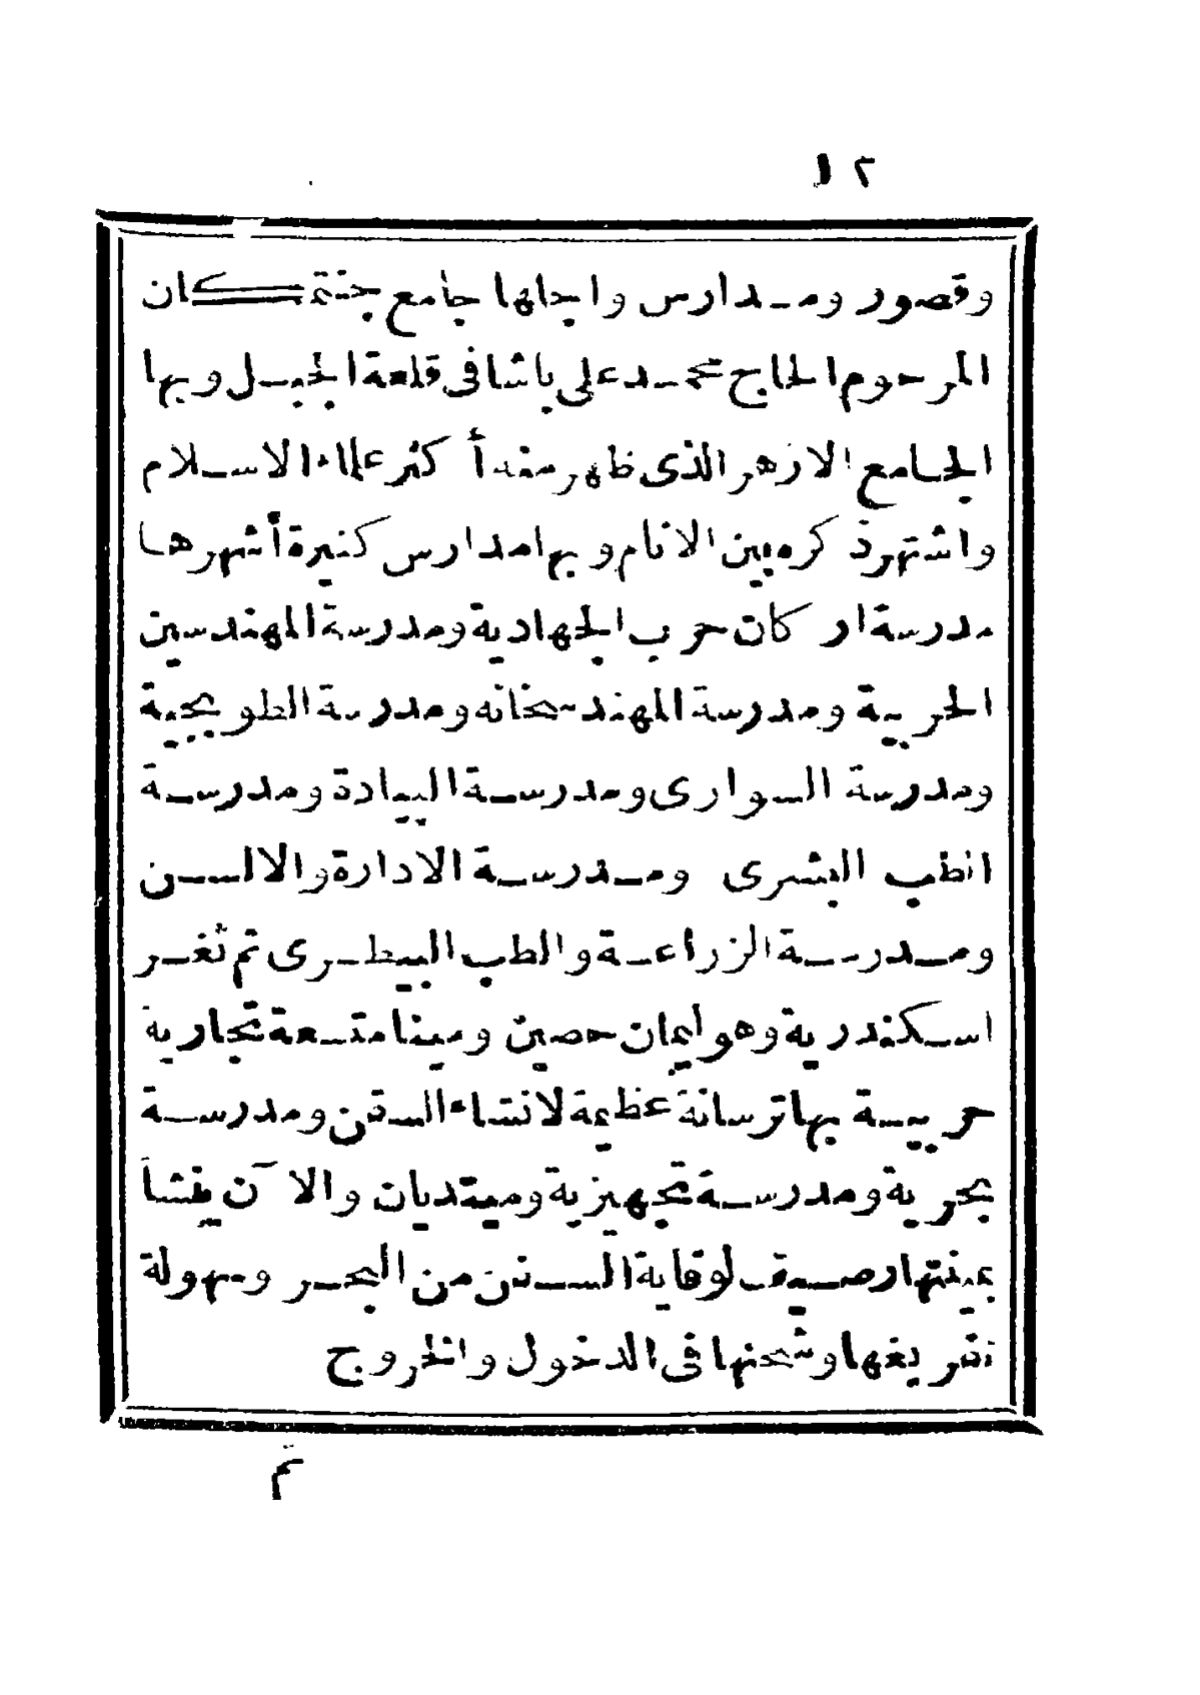 ١٢
وقصور ومدارس واجلها جامع جنتمكان
المرحوم الحاج محمد على باشا فى قلعة الجبل وبها
الجامع الازهر الذى ظهر منه أكثر علماء الاسلام
واشتهر ذكره بين الانام وبها مدارس كثيرة أشهرها
مدرسة اركان حرب الجهادية ومدرسة المهندسين
الحربية ومدرسة المهندسخانه ومدرسة الطوبجية
ومدرسة السوارى ومدرسة البيادة ومدرسة
الطب البشرى ومدرسة الادارة والالسن
ومدرسة الزراعة والطب البيطرى ثم ثغر
اسكندرية وهو ليمان حصين ومينا متسعة تجارية
حربية بها ترسانة عظيمة لانشاء السفن ومدرسة
بحرية ومدرسة تجهيزية ومبتديان والآن ينشأ
بمينتها رصيف لوقاية السفن من البحر وسهولة
تفريغها وشحنها فى الدخول والخروج
ثم